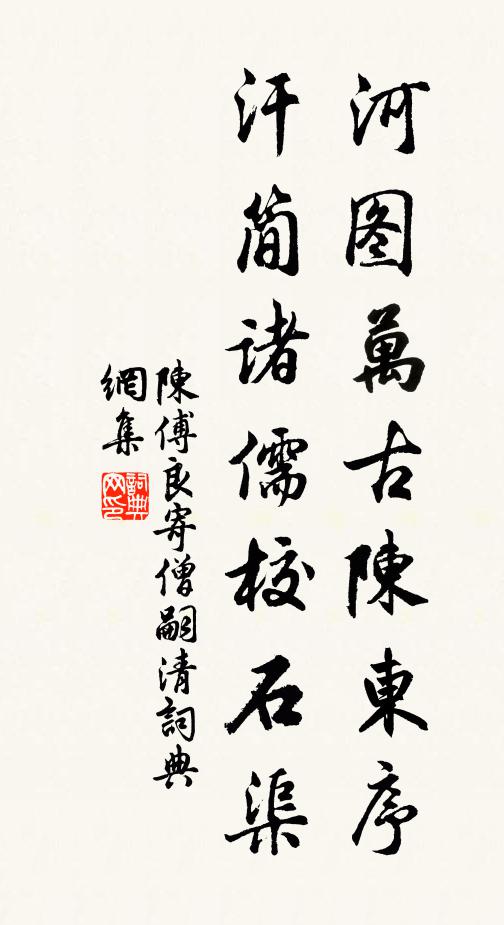 河图萬古陳東序
汗简诸儒校石渠
陳傅良寄僧嗣清詞典
網集
詞典
网印